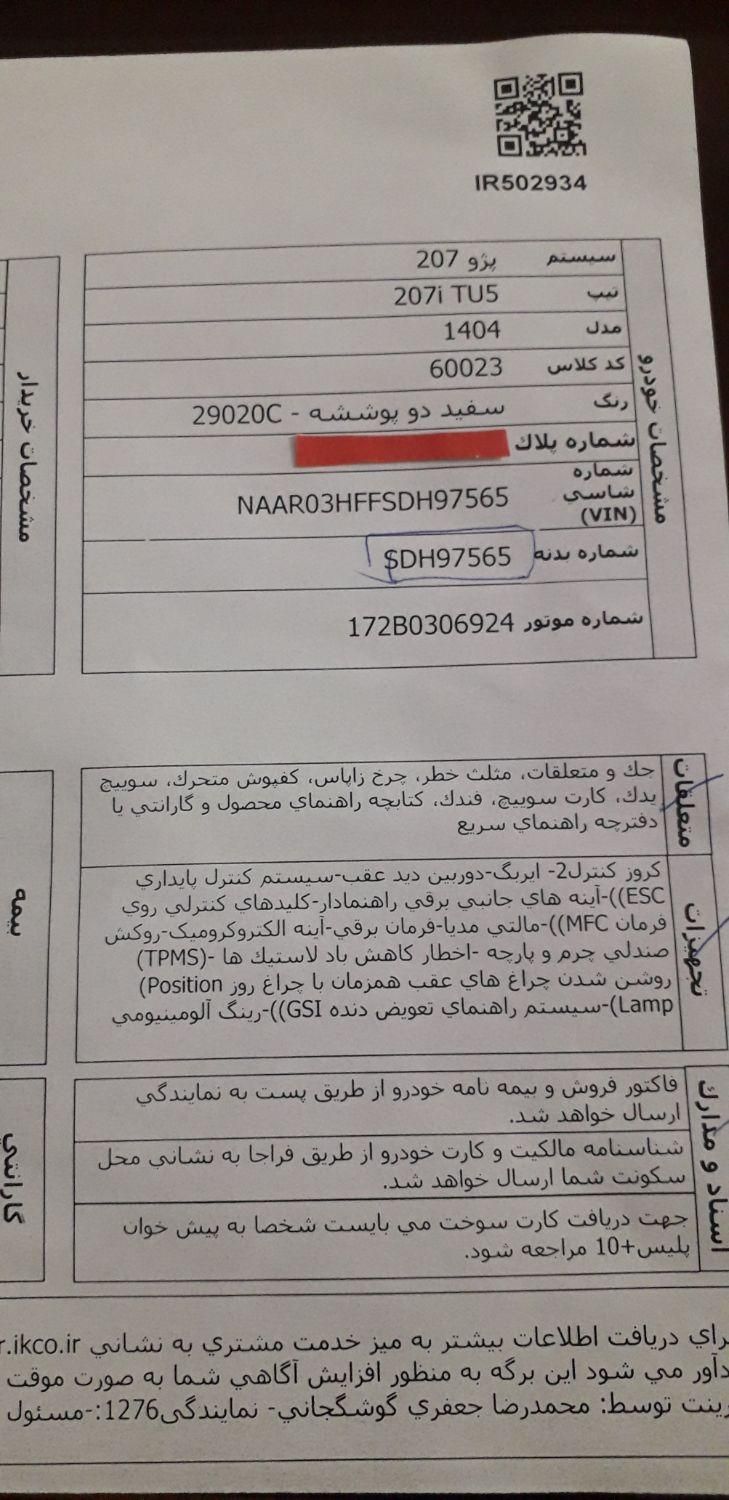 IR502934
مشخصات خودرو
سیستم پژو 207
تیپ 207i TU5
مدل 1404
کد کلاس 60023
رنگ سفید دو پوششه - 29020C
شماره پلاك
شماره
شاسي NAAR03HFFSDH97565
(VIN)
شماره بدنه SDH97565
شماره موتور 172B0306924
مشخصات خریدار
متعلقات
جك و متعلقات، مثلث خطر، چرخ زاپاس، کفپوش متحرك، سوییچ
یدك، کارت سوییچ، فندك، کتابچه راهنماي محصول و گارانتي یا
دفترچه راهنماي سریع
تجهیزات
کروز کنترل2- ایربگ-دوربین دید عقب-سیستم کنترل پایداري
ESC))-آینه هاي جانبي برقي راهنمادار-کلیدهاي کنترلي روي
فرمان MFC))-مالتي مدیا-فرمان برقي-آینه الکتروکرومیک-روکش
صندلي چرم و پارچه -اخطار کاهش باد لاستیك ها -(TPMS)
روشن شدن چراغ هاي عقب همزمان با چراغ روز Position)
Lamp)-سیستم راهنماي تعویض دنده GSI))-رینگ آلومینیومي
بیمه
اسناد و مدارك
فاکتور فروش و بیمه نامه خودرو از طریق پست به نمایندگي
ارسال خواهد شد.
شناسنامه مالکیت و کارت خودرو از طریق فراجا به نشاني محل
سکونت شما ارسال خواهد شد.
جهت دریافت کارت سوخت مي بایست شخصا به پیش خوان
پلیس+10 مراجعه شود.
گارانتي
راي دریافت اطلاعات بیشتر به میز خدمت مشتري به نشاني r.ikco.ir
دآور مي شود این برگه به منظور افزایش آگاهي شما به صورت موقت
رینت توسط: محمدرضا جعفري گوشگجاني- نمایندگی1276:-مسئول